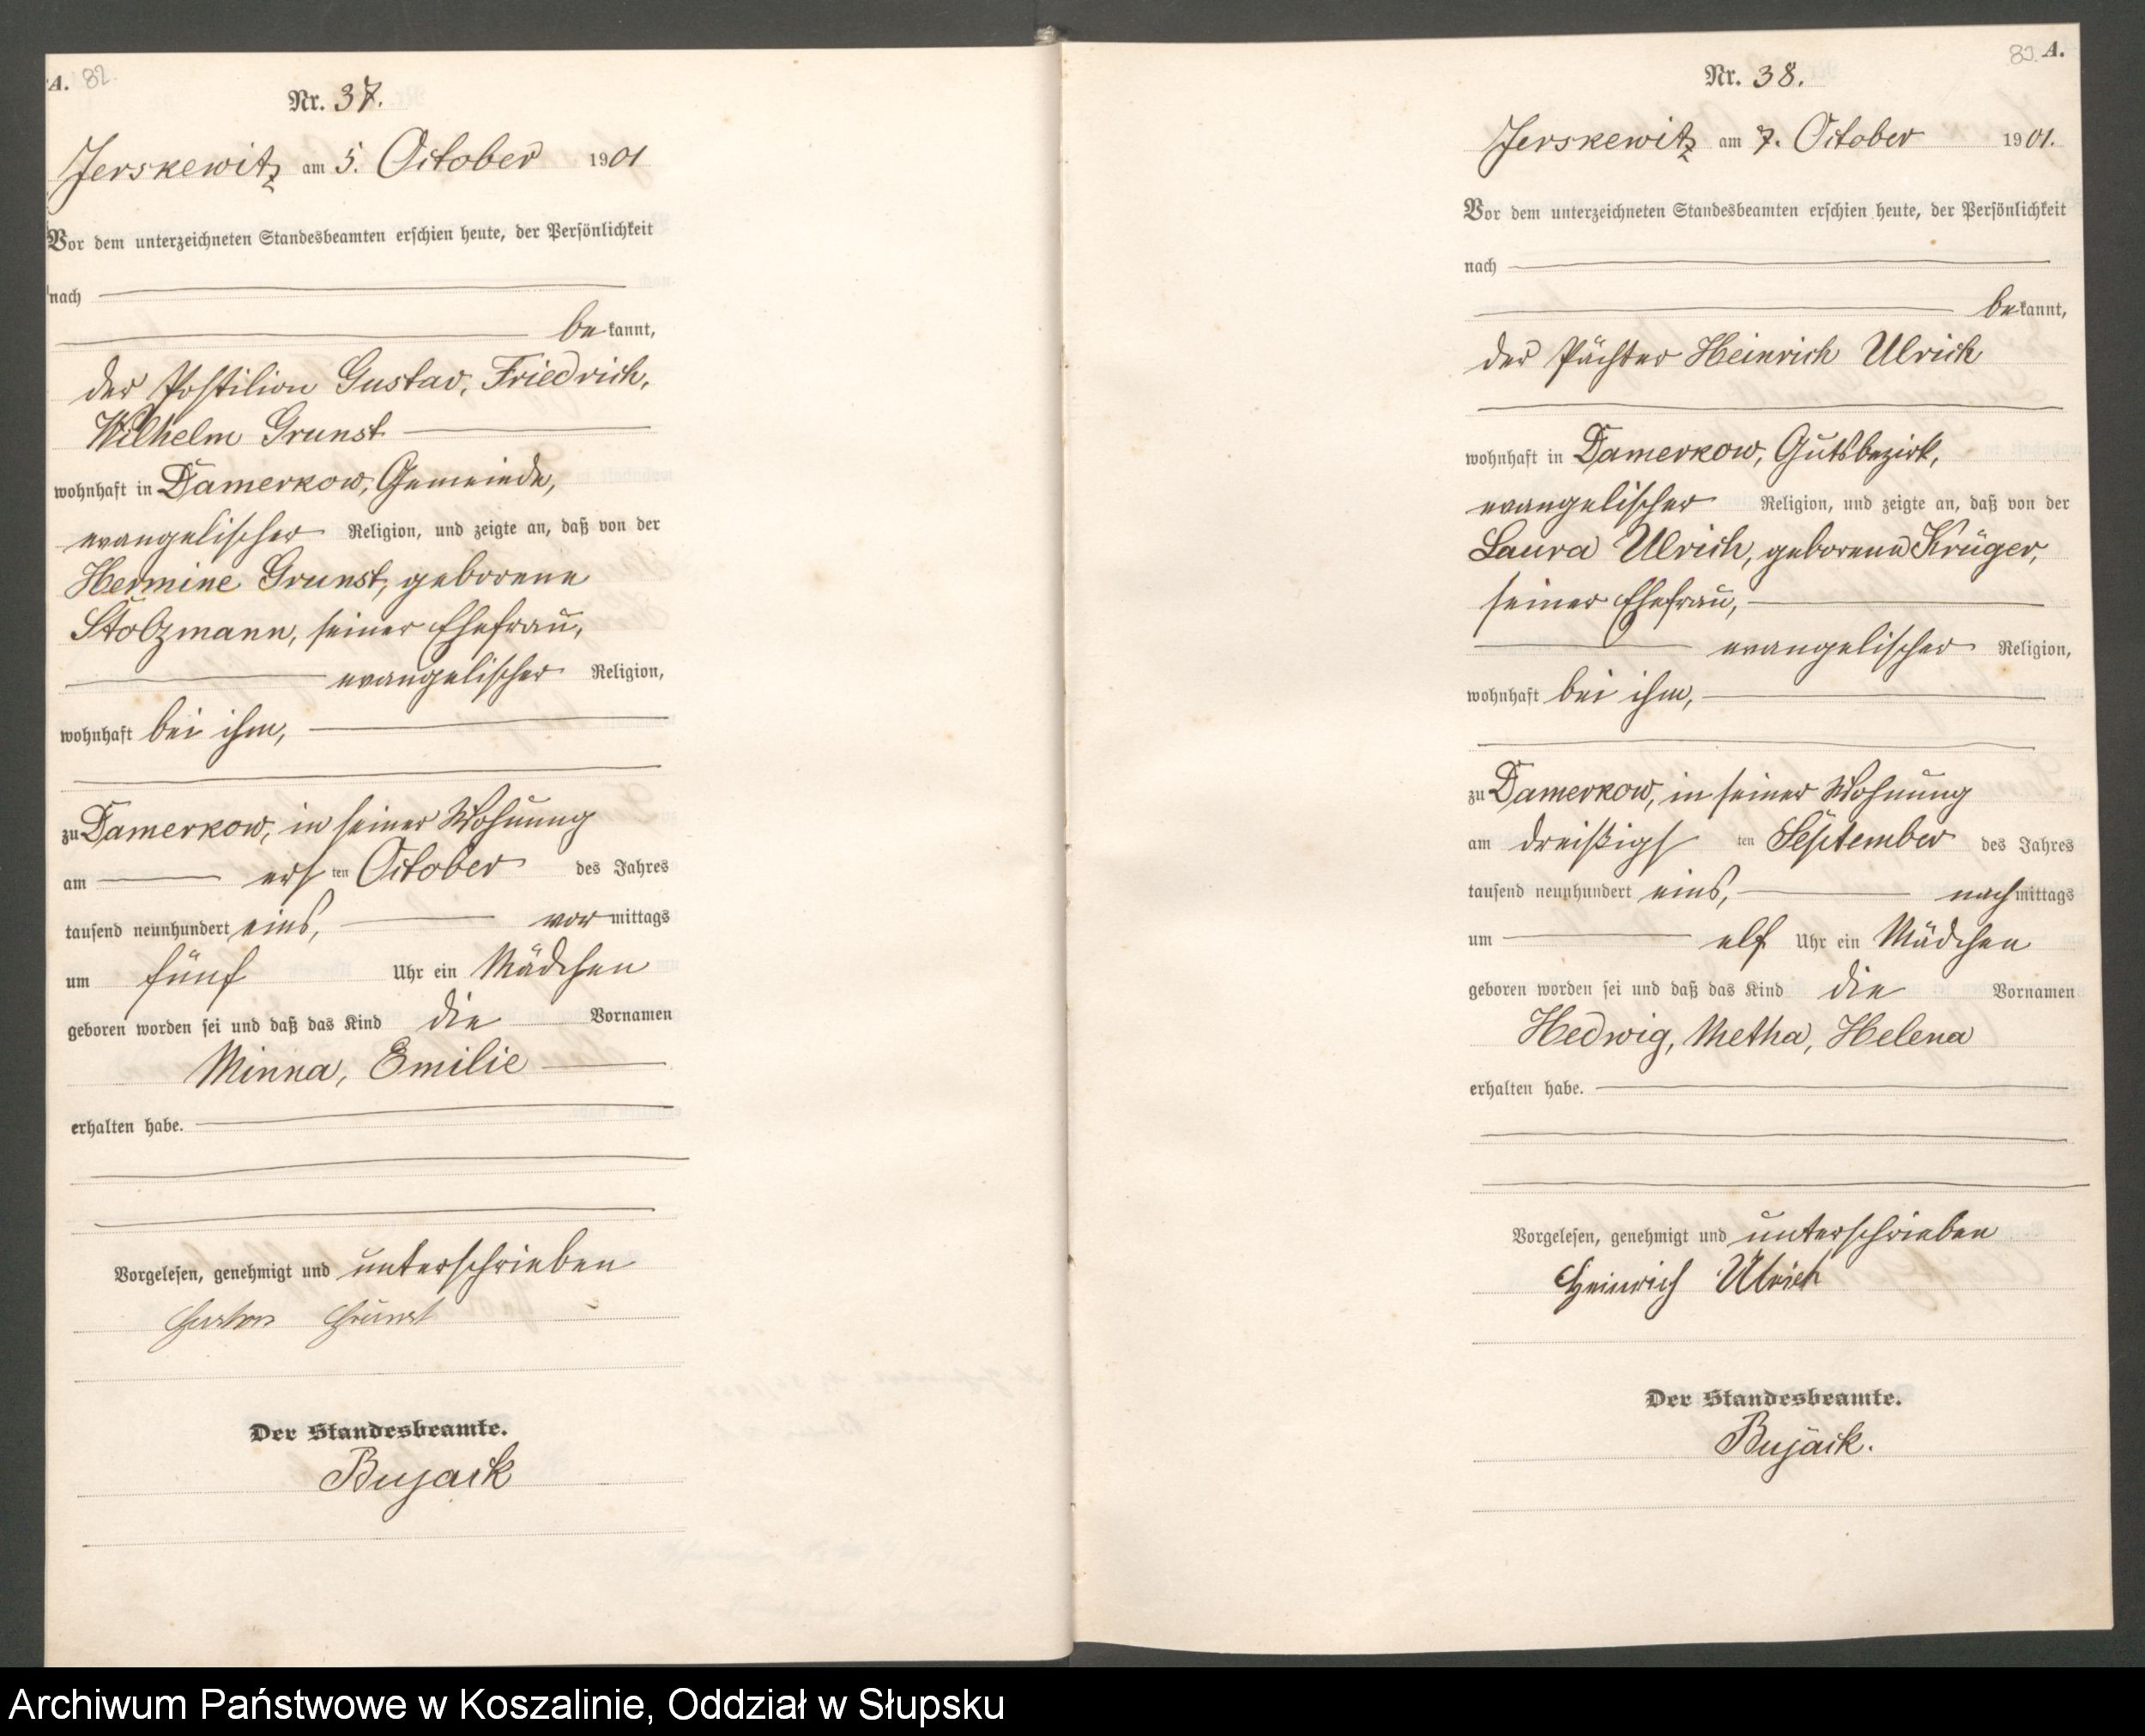 A. 82.
Nr. 37.
Jerskewitz am 5. October 1901
Vor dem unterzeichneten Standesbeamten erschien heute, der Persönlichkeit
nach
bekannt,
der Postilion Gustav, Friedrich,
Wilhelm Grunst
wohnhaft in Damerkow, Gemeinde,
evangelischer Religion, und zeigte an, daß von der
Hermine Grunst, geborene
Stolzmann, seiner Ehefrau,
evangelischer Religion,
wohnhaft bei ihm,
zu Damerkow, in seiner Wohnung
am ersten October des Jahres
tausend neunhundert eins, vormittags
um fünf Uhr ein Mädchen
geboren worden sei und daß das Kind die Vornamen
Minna, Emilie
erhalten habe.
Vorgelesen, genehmigt und unterschrieben
Gustav Grunst
Der Standesbeamte.
Bujack
83. A.
Nr. 38.
Jerskewitz am 7. October 1901.
Vor dem unterzeichneten Standesbeamten erschien heute, der Persönlichkeit
nach
bekannt,
der Pächter Heinrich Ulrich
wohnhaft in Damerkow, Gutsbezirk,
evangelischer Religion, und zeigte an, daß von der
Laura Ulrich, geborene Krüger,
seiner Ehefrau,
evangelischer Religion,
wohnhaft bei ihm,
zu Damerkow, in seiner Wohnung
am dreißigsten September des Jahres
tausend neunhundert eins, nachmittags
um elf Uhr ein Mädchen
geboren worden sei und daß das Kind die Vornamen
Hedwig, Metha, Helena
erhalten habe.
Vorgelesen, genehmigt und unterschrieben
Heinrich Ulrich
Der Standesbeamte.
Bujack.
Archiwum Państwowe w Koszalinie, Oddział w Słupsku